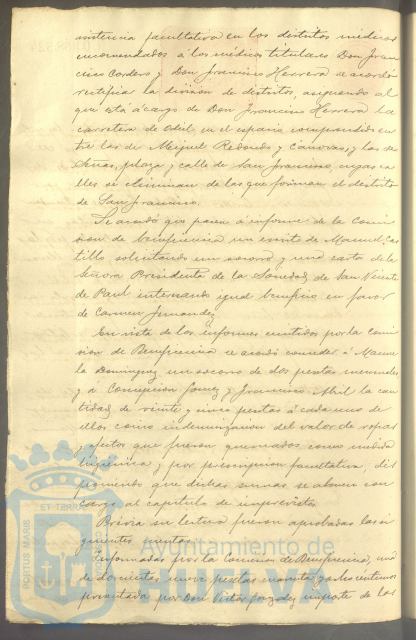 asistencia facultativa en los distritos médicos
encomendados á los médicos titulares Don Fran
cisco Cordero y Don Francisco Herrera se acordó
rectificar la división de distritos, asignando al
que está á cargo de Don Francisco Herrera la
carretera de Odiel, en el espacio comprendido en
tre las de Miguel Redondo y Cánovas, y las de
Señas, plaza y calle de San Francisco, cuyas ca
lles se eliminan de las que forman el distrito
de San Francisco.
Se acordó que pasen á informe de la Comi
sion de beneficencia un escrito de Manuel Cas
tillo solicitando un socorro y una carta de la
Señora Presidenta de la Sociedad de San Vicente
de Paul interesando igual beneficio en favor
de Carmen Fernandez
En vista de los informes emitidos por la comi
sión de Beneficencia se acordó conceder á Manue
la Dominguez un socorro de dos pesetas mensuales
y á Concepcion Gomez y Francisco Abril la can
tidad de veinte y cinco pesetas á cada uno de
ellos como indemnizacion del valor de ropas
y efectos que fueron quemados como medida
higienica y por prescripcion facultativa, dis
poniendo que dichas sumas se abonen con
cargo al capitulo de imprevistos
Previa su lectura fueron aprobadas las si
guientes cuentas.
Informadas por la Comision de Beneficencia, una
de doscientas nueve pesetas cuarenta y ocho centimos
presentada por Don Victor importe de las
Ayuntamiento de
PORTUS MARIS ET TERRÆ